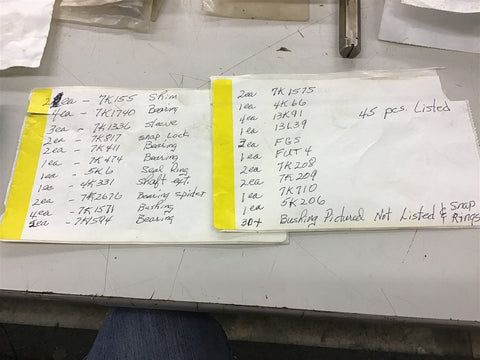 2ea - 7K155 Shim
4ea - 7K1740 Bearing
3ea - 7K1336 sleeve
2ea - 7K817 snap Lock
2ea - 7K411 Bearing
1ea - 7K474 Bearing
1ea - 5K6 Seal Ring
1ea - 4K331 shaft ept.
2ea - 7K2676 Bearing spider
4ea - 7K1571 Bushing
2ea - 7K594 Bearing
2ea 7K1575
1ea 4K66
4ea 13K91
1ea 13L39
2ea FG5
1ea FUT4
2ea 7K208
2ea 7K209
1ea 7K710
1ea 5K206
30+ Bushing Pictured Not Listed & Snap Rings
45 pcs. Listed